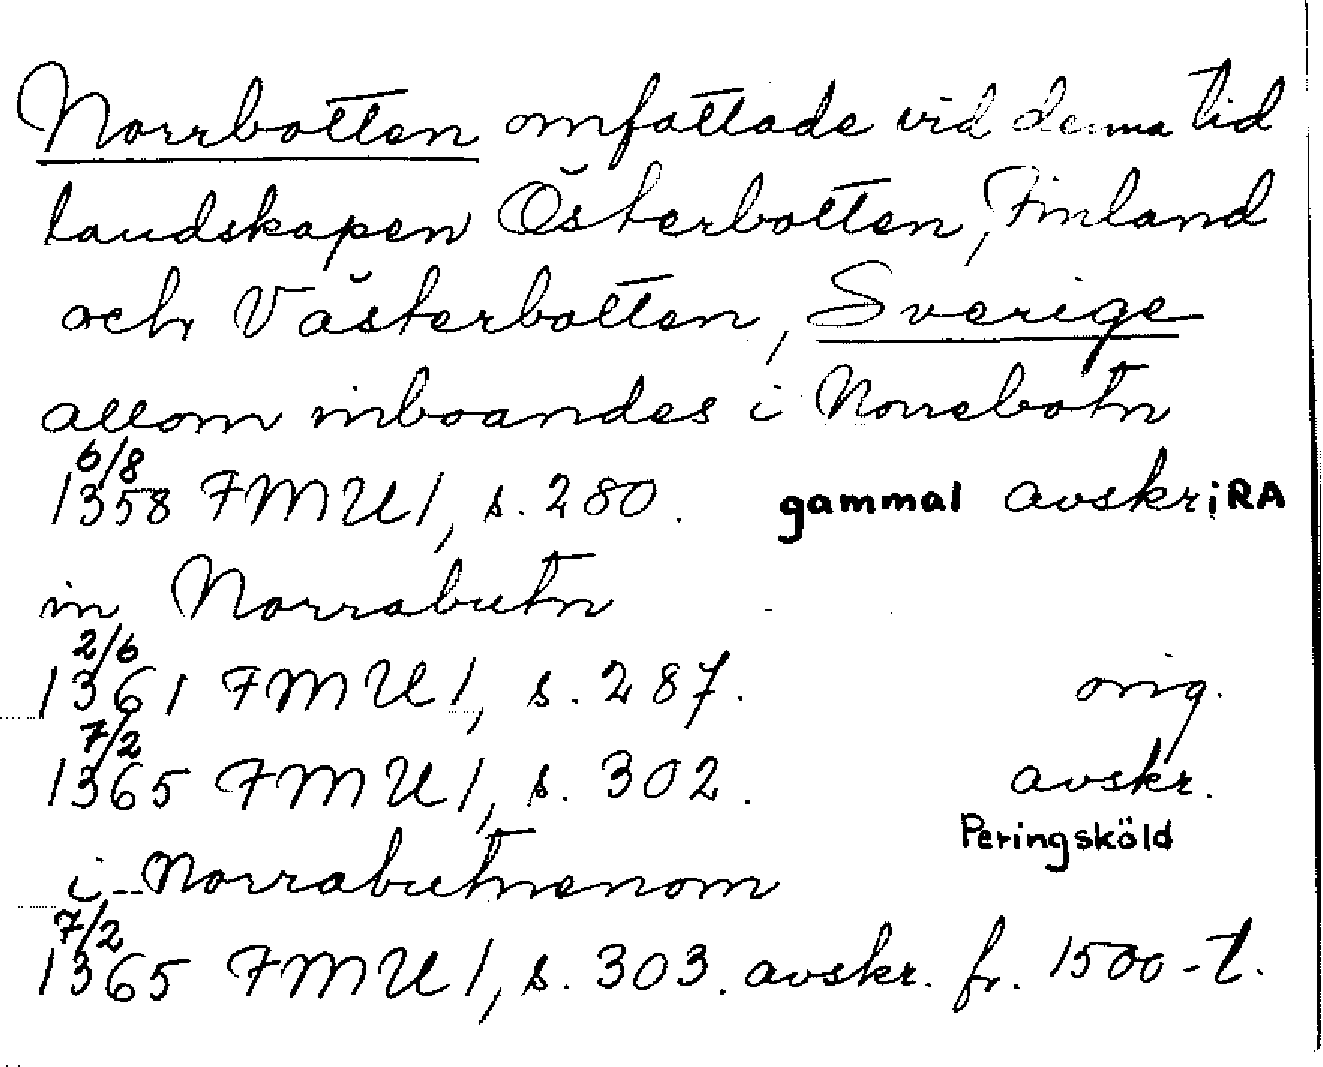 Norrbotten omfattade vid denna tid
landskapen Österbotten, Finland
och Västerbotten, Sverige
allom inboandes i Norrebotn
6/8
1358 FMU 1, s. 280. gammal avskr i RA
in Norrabutn
2/6
1361 FMU 1, s. 287. orig.
7/2
1365 FMU 1, s. 302. avskr.
Peringsköld
i Norrabutnenom
7/2
1365 FMU 1, s. 303. avskr. fr. 1500-t.